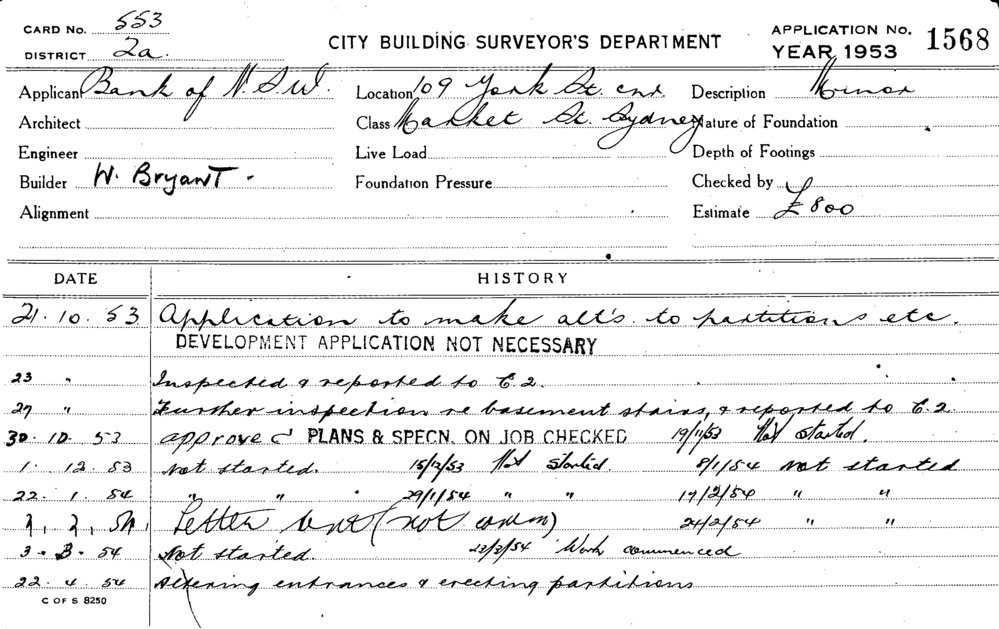 CARD No. 553
DISTRICT 2a.
CITY BUILDING SURVEYOR'S DEPARTMENT
APPLICATION No. 1568
YEAR 1953
Applicant Bank of N.S.W. Location 109 York St. cnr Description Minor
Architect Class Market St. Sydney Nature of Foundation
Engineer Live Load Depth of Footings
Builder W. Bryant. Foundation Pressure Checked by
Alignment Estimate £800
DATE HISTORY
21. 10. 53 Application to make alt's. to partitions etc.
DEVELOPMENT APPLICATION NOT NECESSARY
23 " Inspected & reported to E.2.
27 " Further inspection re basement stairs, & reported to E.2.
30. 10. 53 approved PLANS & SPECN. ON JOB CHECKED 19/11/53 Not started.
1. 12. 53 Not started. 15/12/53 Not started. 8/1/54 not started
22. 1. 54 " " 29/1/54 " " 17/2/54 " "
Letter sent (not comm) 24/2/54 " "
3. 3. 54 Not started. 23/3/54 Work commenced
22. 4. 54 Altering entrances & erecting partitions
C OF S 8250